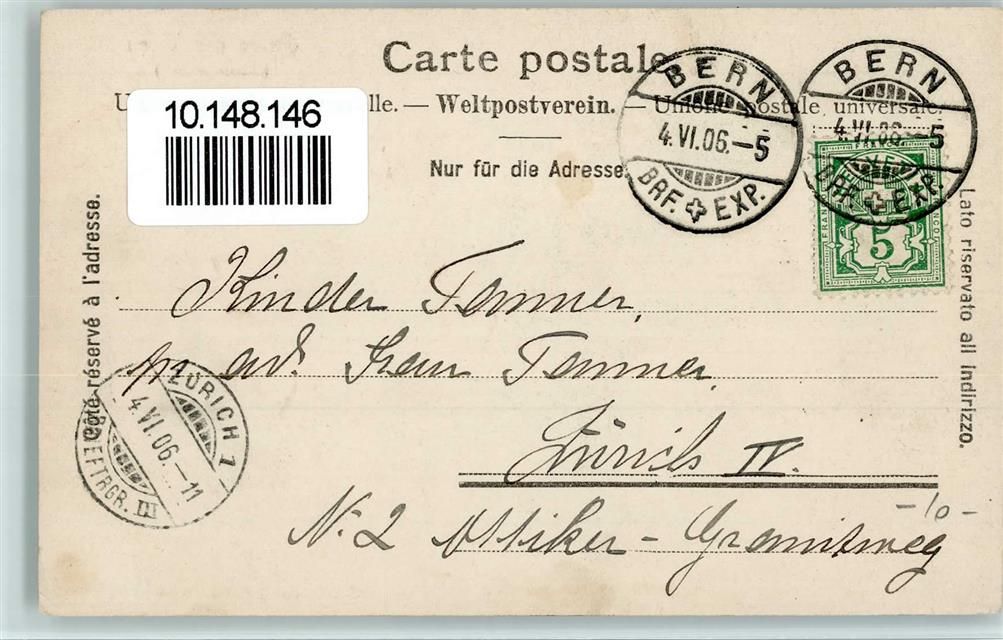 Carte postale
10.148.146
lle. — Weltpostverein. — Union postale universale.
Nur für die Adresse.
BERN
4.VI.06.—5
BRF. EXP.
BERN
4.VI.06.—5
BRF. EXP.
FRANCO
5
Côté réservé à l'adresse.
Lato riservato all indirizzo.
Kinder Tanner,
ad. Frau Tanner,
Zürich IV.
N. 2 Ottiker - Granitweg
-10-
ZÜRICH 1
4.VI.06.—11
BRIEFTRGR. III